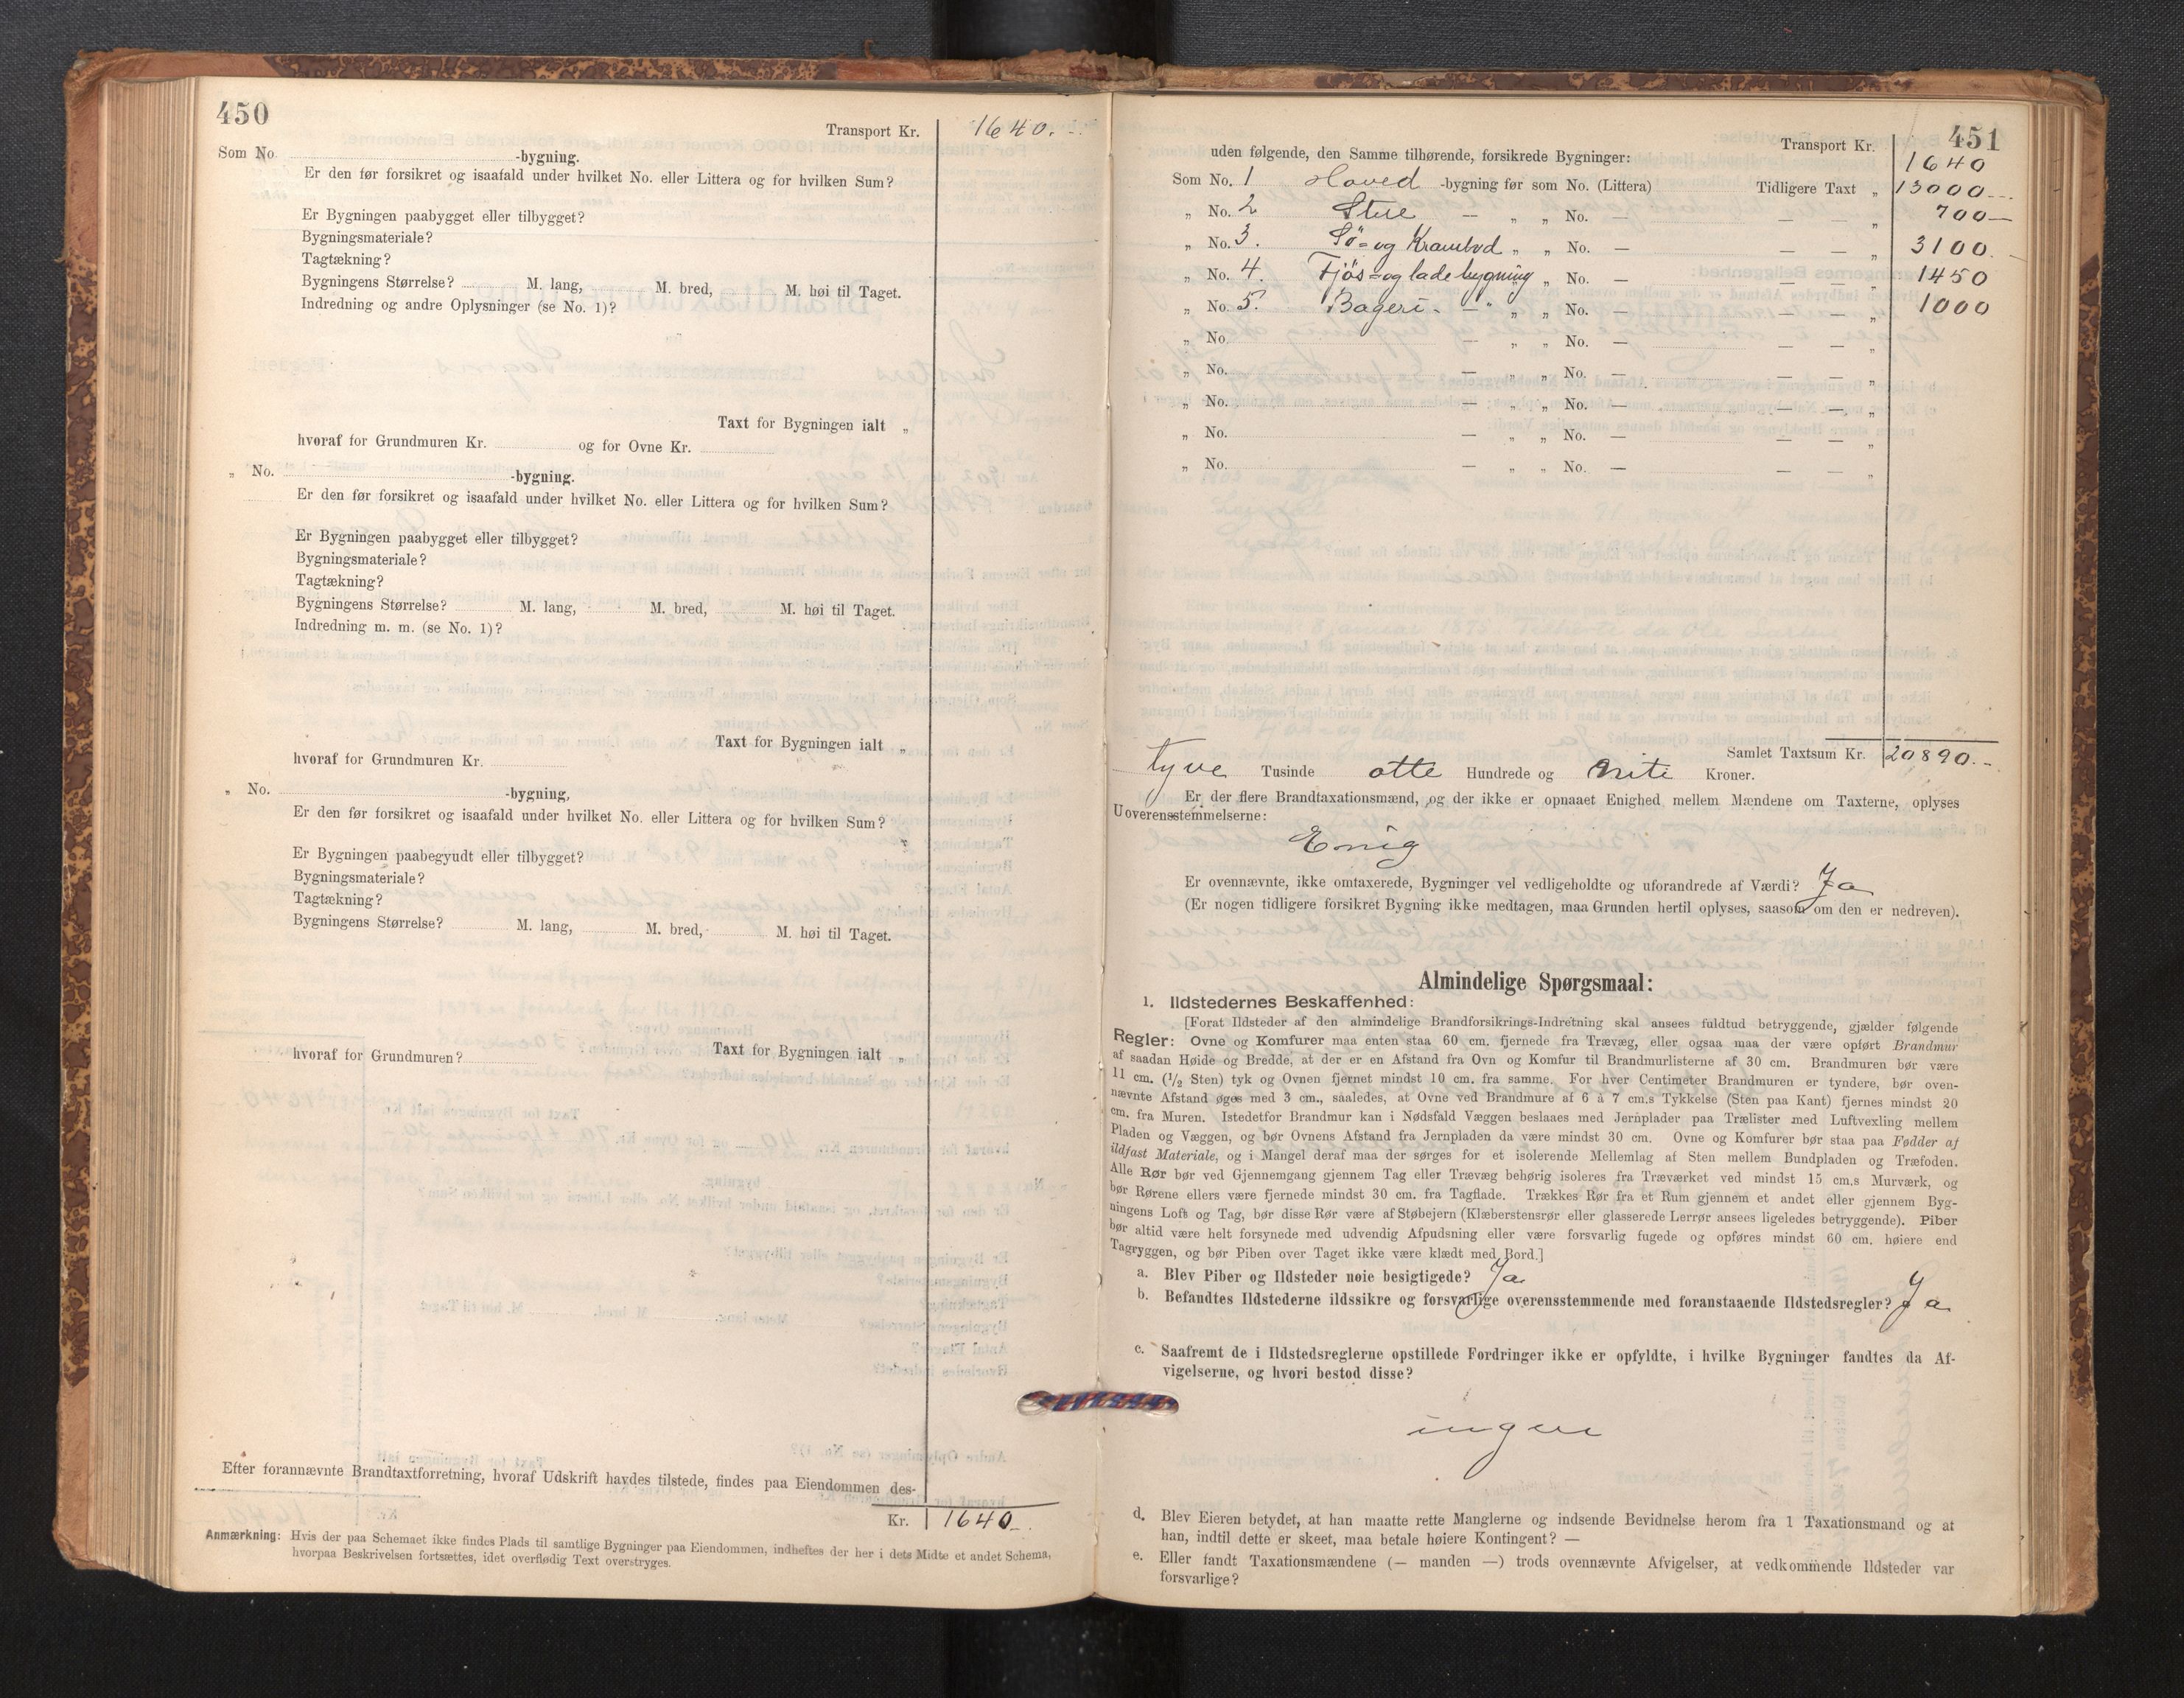 450
Transport Kr. 1640.-
Som No. -bygning.
Er den før forsikret og isaafald under hvilket No. eller Littera og for hvilken Sum?
Er Bygningen paabygget eller tilbygget?
Bygningsmateriale?
Tagtækning?
Bygningens Størrelse? M. lang, M. bred, M. høi til Taget.
Indredning og andre Oplysninger (se No. 1)?
Taxt for Bygningen ialt „
hvoraf for Grundmuren Kr. og for Ovne Kr.
„ No. -bygning.
Er den før forsikret og isaafald under hvilket No. eller Littera og for hvilken Sum?
Er Bygningen paabygget eller tilbygget?
Bygningsmateriale?
Tagtækning?
Bygningens Størrelse? M. lang, M. bred, M. høi til Taget.
Indredning m. m. (se No. 1)?
Taxt for Bygningen ialt „
hvoraf for Grundmuren Kr.
„ No. -bygning,
Er den før forsikret og isaafald under hvilket No. eller Littera og for hvilken Sum?
Er Bygningen paabegyudt eller tilbygget?
Bygningsmateriale?
Tagtækning?
Bygningens Størrelse? M. lang, M. bred, M. høi til Taget.
hvoraf for Grundmuren? Taxt for Bygningen ialt „
Efter forannævnte Brandtaxtforretning, hvoraf Udskrift havdes tilstede, findes paa Eiendommen des-
Kr. 1640.-
Anmærkning: Hvis der paa Schemaet ikke findes Plads til samtlige Bygninger paa Eiendommen, indheftes der her i dets Midte et andet Schema,
hvorpaa Beskrivelsen fortsættes, idet overflødig Text overstryges.
451
Transport Kr. 1640
uden følgende, den Samme tilhørende, forsikrede Bygninger:
Som No. 1 Hoved -bygning før som No. (Littera) Tidligere Taxt „ 13000.-
„ No. 2 Stue — „ „ No. — — — „ 700—
„ No. 3. Sö- og Krambod „ „ No. — — — „ 3100.
„ No. 4. Fjös- og lade bygning „ No. — — — „ 1450
„ No. 5. Bageri - — „ „ No. — — — „ 1000
„ No. — „ „ No. — — — „
„ No. — „ „ No. — — — „
„ No. — „ „ No. — — — „
„ No. — „ „ No. — — — „
„ No. — „ „ No. — — — „
Samlet Taxtsum Kr. 20890.-
tyve Tusinde otte Hundrede og niti Kroner.
Er der flere Brandtaxationsmænd, og der ikke er opnaaet Enighed mellem Mændene om Taxterne, oplyses
Uoverensstemmelserne:
Enig
Er ovennævnte, ikke omtaxerede, Bygninger vel vedligeholdte og uforandrede af Værdi? Ja
(Er nogen tidligere forsikret Bygning ikke medtagen, maa Grunden hertil oplyses, saasom om den er nedreven).
Almindelige Spørgsmaal:
1. Ildstedernes Beskaffenhed:
[Forat Ildsteder af den almindelige Brandforsikrings-Indretning skal ansees fuldtud betryggende, gjælder følgende
Regler: Ovne og Komfurer maa enten staa 60 cm. fjernede fra Trævæg, eller ogsaa maa der være opført Brandmur
af saadan Høide og Bredde, at der er en Afstand fra Ovn og Komfur til Brandmurlisterne af 30 cm. Brandmuren bør være
11 cm. (1/2 Sten) tyk og Ovnen fjernet mindst 10 cm. fra samme. For hver Centimeter Brandmuren er tyndere, bør oven-
nævnte Afstand øges med 3 cm., saaledes, at Ovne ved Brandmure af 6 à 7 cm.s Tykkelse (Sten paa Kant) fjernes mindst 20
cm. fra Muren. Istedetfor Brandmur kan i Nødsfald Væggen beslaaes med Jernplader paa Trælister med Luftvexling mellem
Pladen og Væggen, og bør Ovnens Afstand fra Jernpladen da være mindst 30 cm. Ovne og Komfurer bør staa paa Fødder af
ildfast Materiale, og i Mangel deraf maa der sørges for et isolerende Mellemlag af Sten mellem Bundpladen og Træfoden.
Alle Rør bør ved Gjennemgang gjennem Tag eller Trævæg behørig isoleres fra Træværket ved mindst 15 cm.s Murværk, og
bør Rørene ellers være fjernede mindst 30 cm. fra Tagflade. Trækkes Rør fra et Rum gjennem et andet eller gjennem Byg-
ningens Loft og Tag, bør disse Rør være af Støbejern (Klæberstensrør eller glasserede Lerrør ansees ligeledes betryggende). Piber
bør altid være helt forsynede med udvendig Afpudsning eller være forsvarlig fugede og opføres mindst 60 cm. høiere end
Tagryggen, og bør Piben over Taget ikke være klædt med Bord.]
a. Blev Piber og Ildsteder nøie besigtigede? Ja
b. Befandtes Ildstederne ildssikre og forsvarlige overensstemmende med foranstaaende Ildstedsregler? Ja
c. Saafremt de i Ildstedsreglerne opstillede Fordringer ikke er opfyldte, i hvilke Bygninger fandtes da Af-
vigelserne, og hvori bestod disse?
ingen
d. Blev Eieren betydet, at han maatte rette Manglerne og indsende Bevidnelse herom fra 1 Taxationsmand og at
han, indtil dette er skeet, maa betale høiere Kontingent? —
e. Eller fandt Taxationsmændene (— manden —) trods ovennævnte Afvigelser, at vedkommende Ildsteder var
forsvarlige?